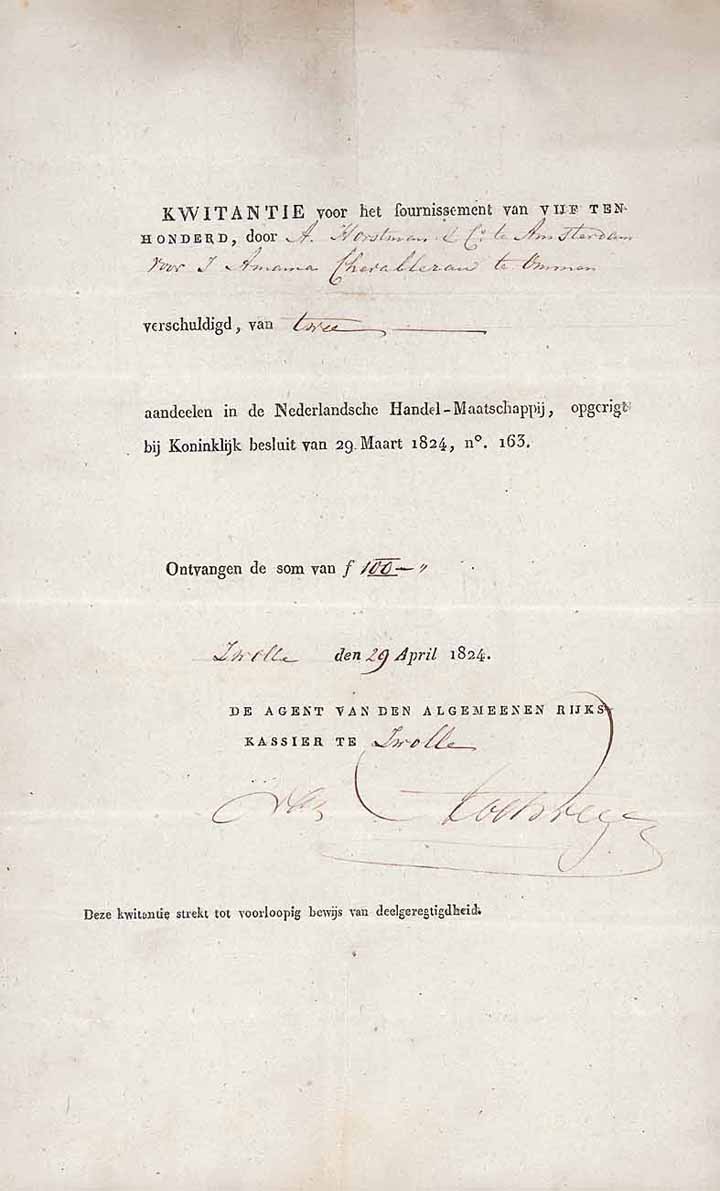 KWITANTIE voor het fournissement van VIJF TEN
HONDERD, door A. Horstman & Co. te Amsterdam
voor J Amama Chevallerau te Ommen
verschuldigd, van twee
aandeelen in de Nederlandsche Handel-Maatschappij, opgerigt
bij Koninklijk besluit van 29 Maart 1824, nº. 163.
Ontvangen de som van f 100 — "
Zwolle den 29 April 1824.
DE AGENT VAN DEN ALGEMEENEN RIJKS-
KASSIER TE Zwolle
Deze kwitantie strekt tot voorloopig bewijs van deelgeregtigdheid.